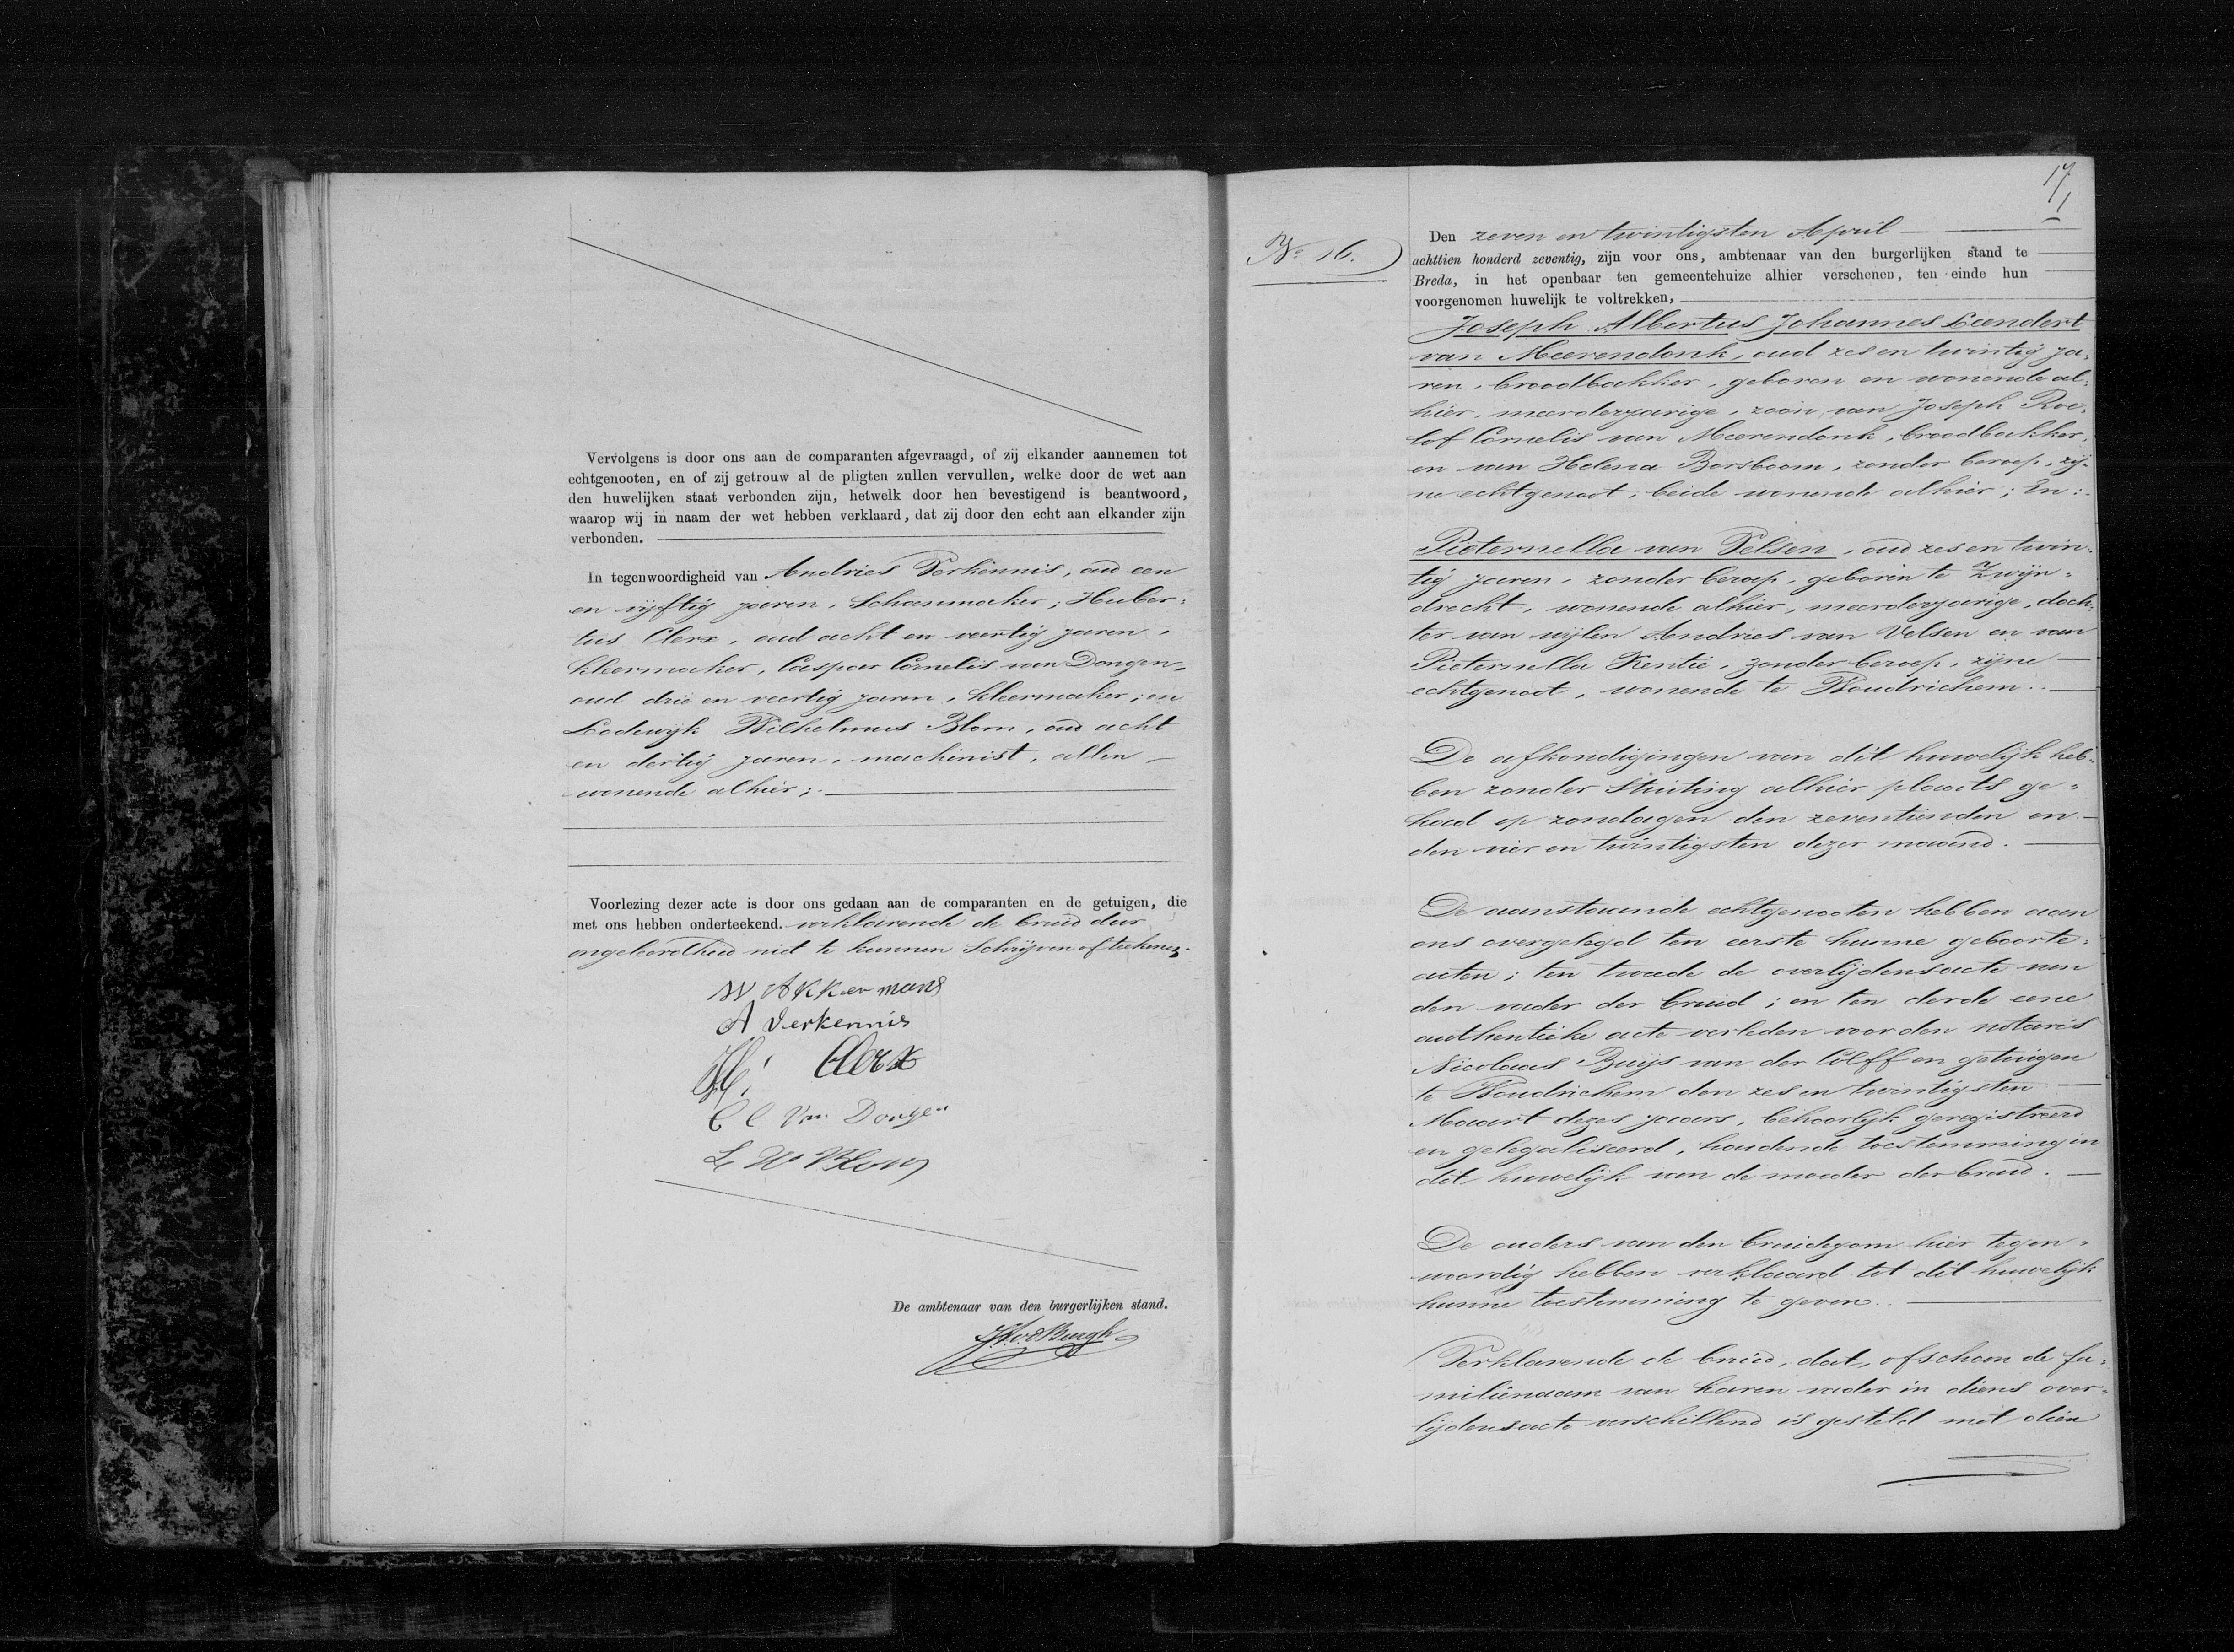 Vervolgens is door ons aan de comparanten afgevraagd, of zij elkander aannemen tot
echtgenooten, en of zij getrouw al de pligten zullen vervullen, welke door de wet aan
den huwelijken staat verbonden zijn, hetwelk door hen bevestigend is beantwoord,
waarop wij in naam der wet hebben verklaard, dat zij door den echt aan elkander zijn
verbonden.
In tegenwoordigheid van Andries Verkennis, oud een
en vijftig jaren, Schoenmaker; Huber=
tus Clerx, oud acht en veertig jaren,
kleermaker, Caspar Cornelis van Dongen,
oud drie en veertig jaren, kleermaker; en
Lodewijk Wilhelmus Blom, oud acht
en dertig jaren, machinist, allen
wonende alhier;
Voorlezing dezer acte is door ons gedaan aan de comparanten en de getuigen, die
met ons hebben onderteekend. verklarende de bruid door
ongeleerdheid niet te kunnen Schrijven of teekenen.
W Akkermans
A Verkennis
H: Clerx
C C Van Dongen
L W Blom
De ambtenaar van den burgerlijken stand.
17
No 16.
Den zeven en twintigsten April
achttien honderd zeventig, zijn voor ons, ambtenaar van den burgerlijken stand te
Breda, in het openbaar ten gemeentehuize alhier verschenen, ten einde hun
voorgenomen huwelijk te voltrekken,
Joseph Albertus Johannes Leendert
van Meerendonk, oud zes en twintig ja=
ren, broodbakker, geboren en wonende al=
hier, meerderjarige, zoon van Joseph Roe=
lof Cornelis van Meerendonk, broodbakker,
en van Helena Borsboom, zonder beroep, zij=
ne echtgenoot, beide wonende alhier; En:
Pieternella van Velsen, oud zes en twin=
tig jaren, zonder beroep, geboren te Zwijn=
drecht, wonende alhier, meerderjarige, doch=
ter van wijlen Andries van Velsen en van
Pieternella Kentie, zonder beroep, zijne
echtgenoot, wonende te Woudrichem.
De afkondigingen van dit huwelijk heb=
ben zonder Stuiting alhier plaats ge=
had op zondagen den zeventienden en
den vier en twintigsten dezer maand.
De aanstaande echtgenooten hebben aan
ons overgelegd ten eerste hunne geboorte=
acten; ten tweede de overlijdensacte van
den vader der bruid; en ten derde eene
authentieke acte verleden voor den notaris
Nicolaas Buijs van der Colff en getuigen
te Woudrichem den zes en twintigsten
Maart dezes jaars, behoorlijk geregistreerd
en gelegaliseerd, houdende toestemming in
dit huwelijk van de moeder der bruid.
De ouders van den bruidegom hier tegen=
woordig hebben verklaard tot dit huwelijk
hunne toestemming te geven.
Verklarende de bruid, dat, ofschoon de fa=
milienaam van haren vader in diens over=
lijdensacte verschillend is gesteld met dien